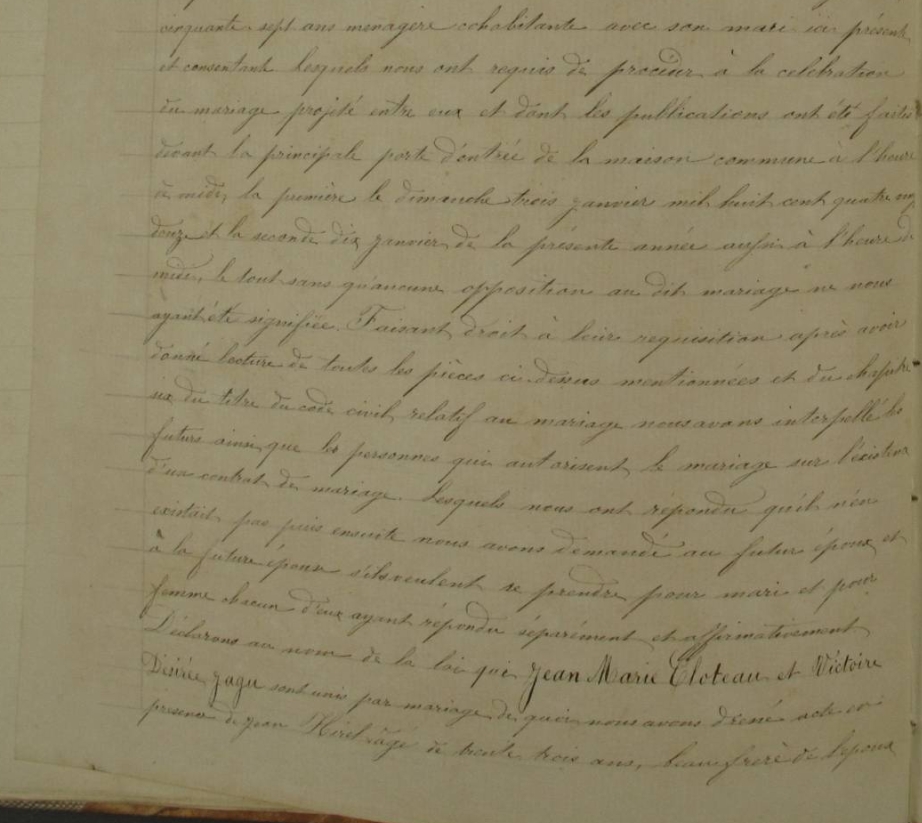 cinquante sept ans menagère cohabitante avec son mari ici présents
et consentant lesquels nous ont requis de proceder à la celebration
du mariage projeté entre eux et dont les publications ont été faites
devant la principale porte d'entrée de la maison commune à l'heure
de midi, la première le dimanche trois janvier mil huit cent quatre vingt
douze et la seconde dix janvier de la présente année aussi à l'heure de
midi, le tout sans qu'aucune opposition au dit mariage ne nous
ayant été signifiée. Faisant droit à leur requisition après avoir
donné lecture de toutes les pièces ci dessus mentionnées et du chapitre
six du titre du code civil relatif au mariage nous avons interpellé les
futurs ainsi que les personnes qui autorisent le mariage sur l'existence
d'un contrat de mariage. Lesquels nous ont répondu qu'il n'en
existait pas puis ensuite nous avons demandé au futur époux et
à la future épouse s'ils veulent se prendre pour mari et pour
femme chacun d'eux ayant répondu séparément et affirmativement
Déclarons au nom de la loi que Jean Marie Eloteau et Victoire
Désirée Jagu sont unis par mariage de quoi nous avons dressé acte en
presence de Jean Hirel âgé de trente trois ans, beau frère de l'epoux